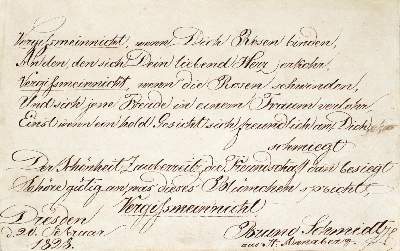 Vergissmeinnicht, wenn Dich Rosen binden,
An den, den sich Dein liebend Herz erkohr,
Vergissmeinnicht, wenn die Rosen schwinden,
Und sich jene Freude in einem Traum verlohr
Einst wenn ein hold Gesicht sich freundlich an Dich
schmiegt
Der Schönheit Zauber die Freundschaft besiegt
Höre gütig an, was dieses Blümchen spricht,
Vergissmeinnicht
Dresden
d. 20. Februar
1823.
Bruno Schmidt
aus St. Annaberg